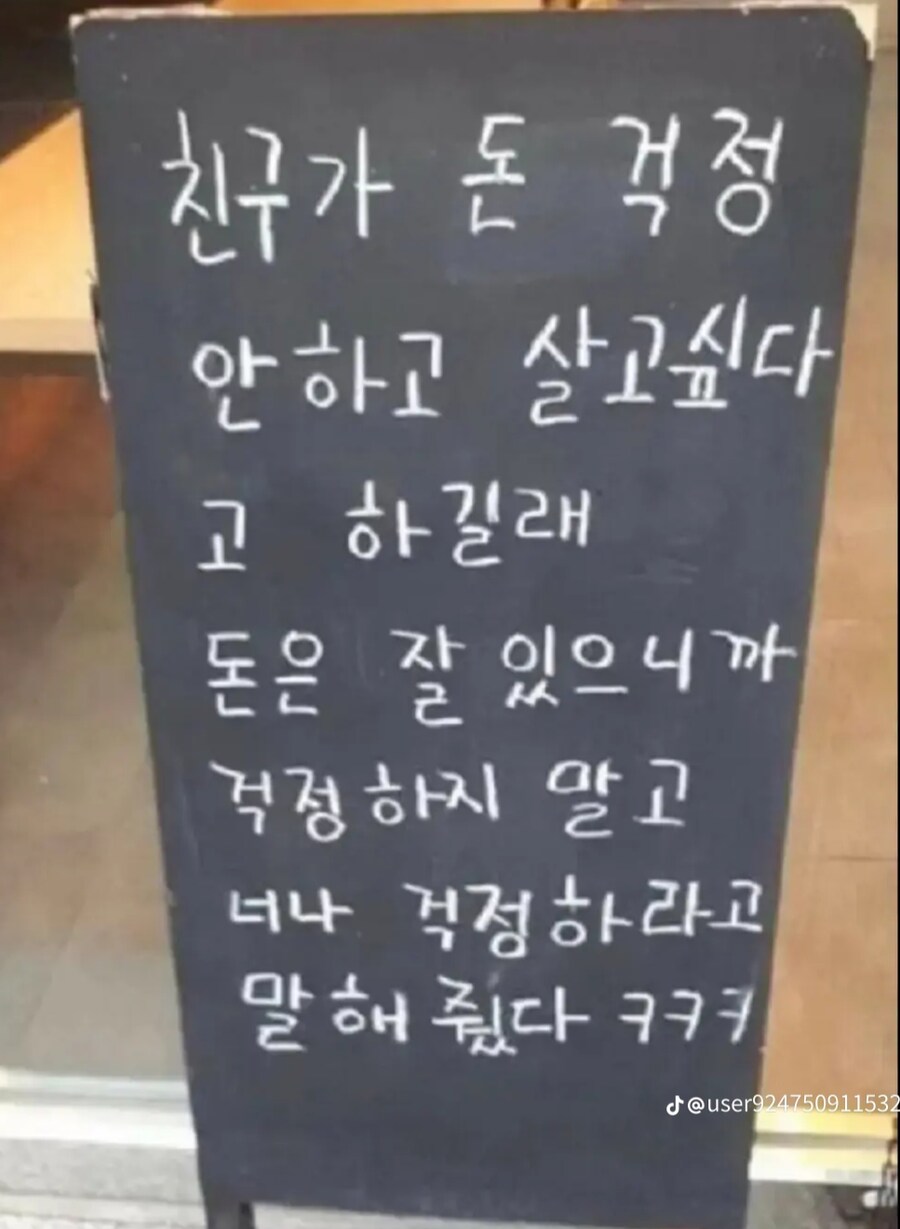 친구가 돈 걱정
안하고 살고싶다
고 하길래
돈은 잘 있으니까
걱정하지 말고
너나 걱정하라고
말해 줬다 ㅋㅋㅋ
@user924750911532